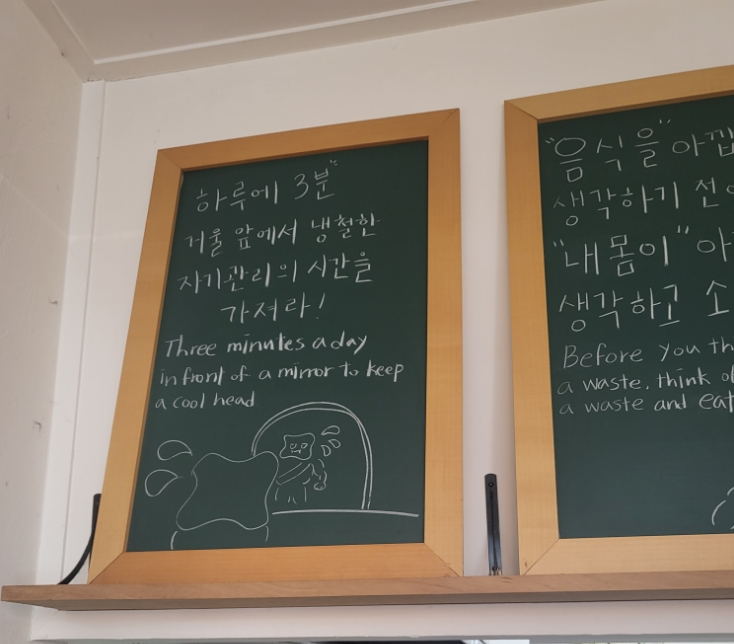 하루에 3분"
거울 앞에서 냉철한
자기관리의 시간을
가져라!
Three minutes a day
in front of a mirror to keep
a cool head
"음식을" 아깝
생각하기 전에
"내 몸이" 아
생각하고 소
Before you th
a waste, think of
a waste and eat